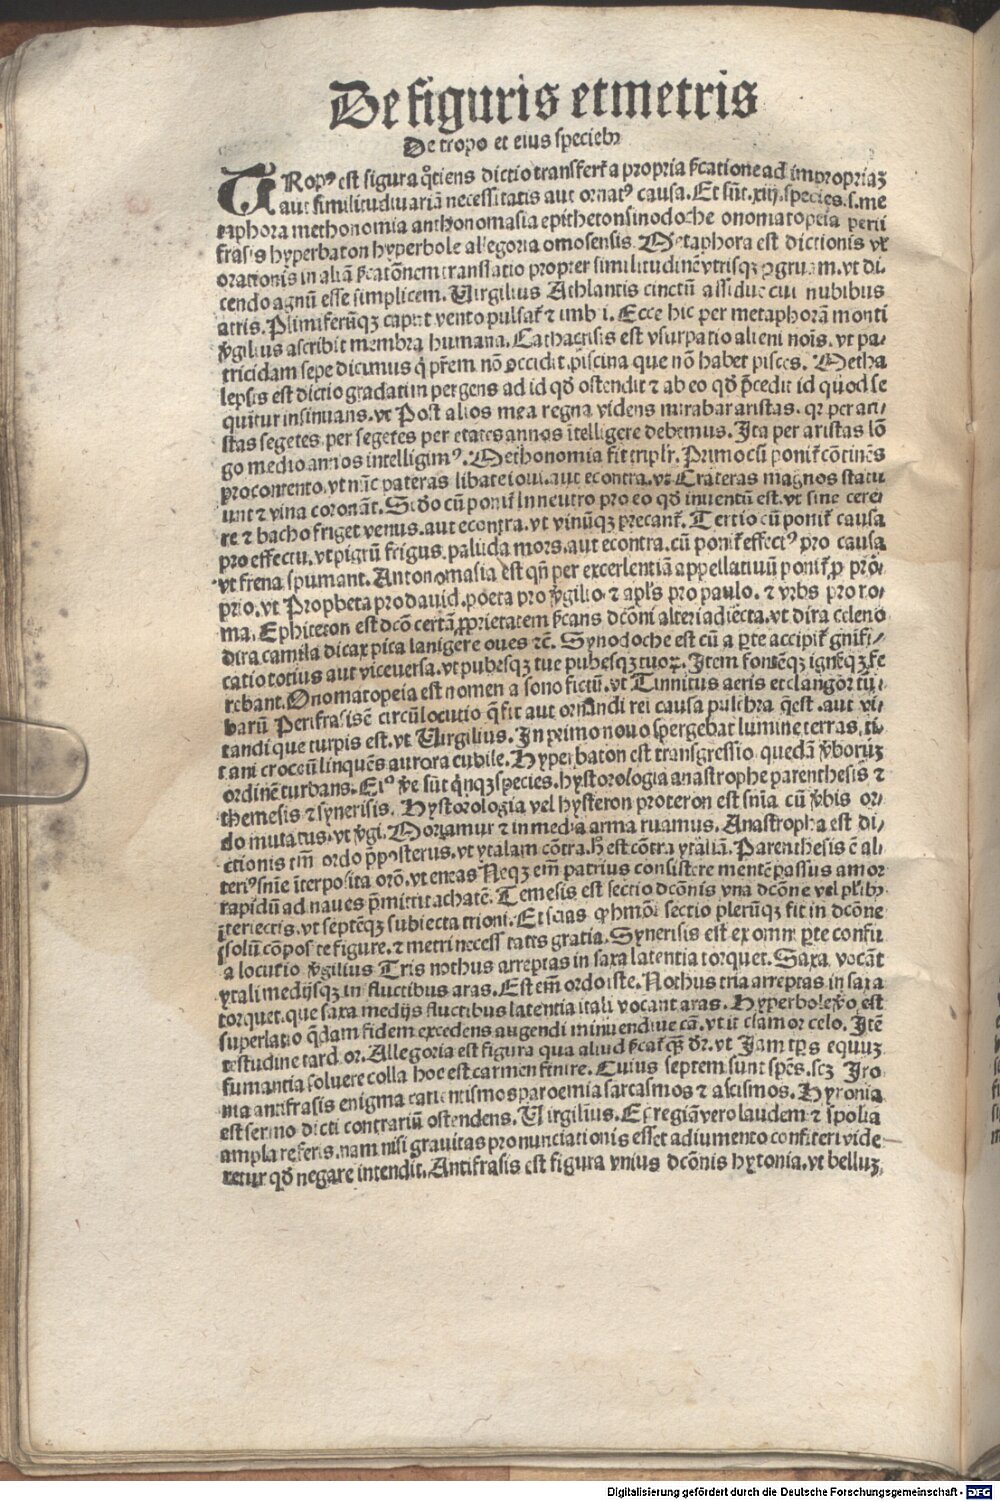 De figuris et metris
De tropo et eius speciebꝫ
TRopꝰ est figura q̈tiens dictio transfert̃ a propria ſcatione ad impropriaꝫ
aut similitudinariã necessitatis aut ornatꝰ causa. Et sũt .xiij. species .s. me
taphora methonomia anthonomasia epitheton sinodoche onomatopeia perii
frasis hyperbaton hyperbole allegoria omosensis. Metaphora est dictionis vľ
orationis in aliã ſcatõnem translatio propter similitudinẽ vtriusqꝫ ꝯgruam. vt di
cendo agnũ esse simplicem. Virgilius Athlantis cinctũ assidue cui nubibus
atris. Piniferũqꝫ caput vento pulsat̃ ⁊ imbri. Ecce hic per metaphorã monti
v̓gilius ascribit membra humana. Cathacrisis est vsurpatio alieni nois. vt pa⸗
tricidam sepe dicimus q̇ pr̃em nõ occidit. piscina que nõ habet pisces. Metha
lepsis est dictio gradatim pergens ad id qď ostendit ⁊ ab eo qď p̃cedit id quod se
quitur insinuans. vt Post aliquos mea regna videns mirabar aristas. qꝛ per ari⸗
stas segetes. per segetes per etates annos ĩtelligere debemus. Ita per aristas lõ
go medio annos intelligimꝰ. Methonomia fit triplr̃. Primo cũ ponit̃ cõtinẽs
pro contento. vt nũc pateras libate ioui. aut econtra. vt Crateras magnos statu
unt ⁊ vina coronãt. Scďo cũ ponit̃ Inuentor pro eo qď inuentũ est. vt sine cere
re ⁊ bacho friget venus. aut econtra. vt vinũqꝫ precant̃. Tertio cũ ponit̃ causa
pro effectu. vt pigrũ frigus. palida mors. aut econtra. cũ ponit̃ effectꝰ pro causa
vt frena spumant. Antonomasia est qñ per excellentiã appellatiuũ ponit̃ ꝓ pro⸗
prio. vt Propheta pro dauid. poeta pro v̓gilio. ⁊ apl̃s pro paulo. ⁊ vrbs pro ro⸗
ma. Ephiteton est dcõ certã ꝓprietatem ſcans dcõni alteri adiecta. vt dira celeno
dira camila dicax pica lanigere oues ⁊c̃. Synodoche est cũ a ꝑte accipit̃ gnifi⸗
catio totius aut viceuersa. vt pubesqꝫ tue pubesqꝫ tuoꝝ. Item fontẽqꝫ ignẽqꝫ fe
rebant. Onomatopeia est nomen a sono fictũ. vt Tinnitus aeris et clangor tu⸗
barũ Perifrasis ẽ circũlocutio q̃ fit aut ornandi rei causa pulchra q̃ est. aut vi⸗
tandi que turpis est. vt Virgilius. In primo nouo spergebat lumine terras. ti⸗
tani croceũ linquẽs aurora cubile. Hyperbaton est transgressio quedã v̓boruꝫ
ordinẽ turbans. Eiꝰ v̓e sũt q̇nqꝫ species. hystorologia anastrophe parenthesis ⁊
themesis ⁊ synerisis. Hystorologia vel hysteron proteron est snĩa cũ v̓bis or⸗
do mutatus. vt v̓gi. Moriamur ⁊ in media arma ruamus. Anastropha est di⸗
ctionis tm̃ ordo p̃posterus. vt ytalam cõtra. h̃ est cõtra ytaliã. Parenthesis ẽ al⸗
teriꝰ snĩe ĩterposita orõ. vt eneas Neqꝫ em̃ patrius consistere mentẽ passus amor
rapidũ ad naues p̃mittit achatẽ. Temesis est sectio dcõnis vna dcõne vel pl̃ibꝫ
ĩteriectis. vt septẽqꝫ subiecta trioni. Et scias ꝙ hmõi sectio plerũqꝫ fit in dcõne
solũ cõposite figure. ⁊ metri necessitatis gratia. Synerisis est ex omni ꝑte confu
sa locutio v̓gilius Tris nothus arreptas in saxa latentia torquet. Saxa vocãt
ytali medijsqꝫ in fluctibus aras. Est em̃ ordo iste. Nothus tria arreptas in saxa
torquet. que saxa medijs fluctibus latentia itali vocant aras. Hyperbole v̓o est
superlatio q̃dam fidem excedens augendi minuendiue cã. vt it clamor celo. Itẽ
testudine tardior. Allegoria est figura qua aliud ſcat̃ qꝫ̃ dr̃. vt Jam tp̃s equuꝫ
fumantia soluere colla hoc est carmen finire. Cuius septem sunt spẽs. scꝫ Jro
nia antifrasis enigma carientismos paroemia sarcasmos ⁊ ascismos. Hyronia
est sermo dicti contrariũ ostendens. Virgilius. Egregiã vero laudem ⁊ spolia
ampla refertis. nam nisi grauitas pronunciationis esset adiumento confiteri vide
retur qď negare intendit. Antifrasis est figura vnius dcõnis hyronia. vt belluꝫ
Digitalisierung gefördert durch die Deutsche Forschungsgemeinschaft - DFG